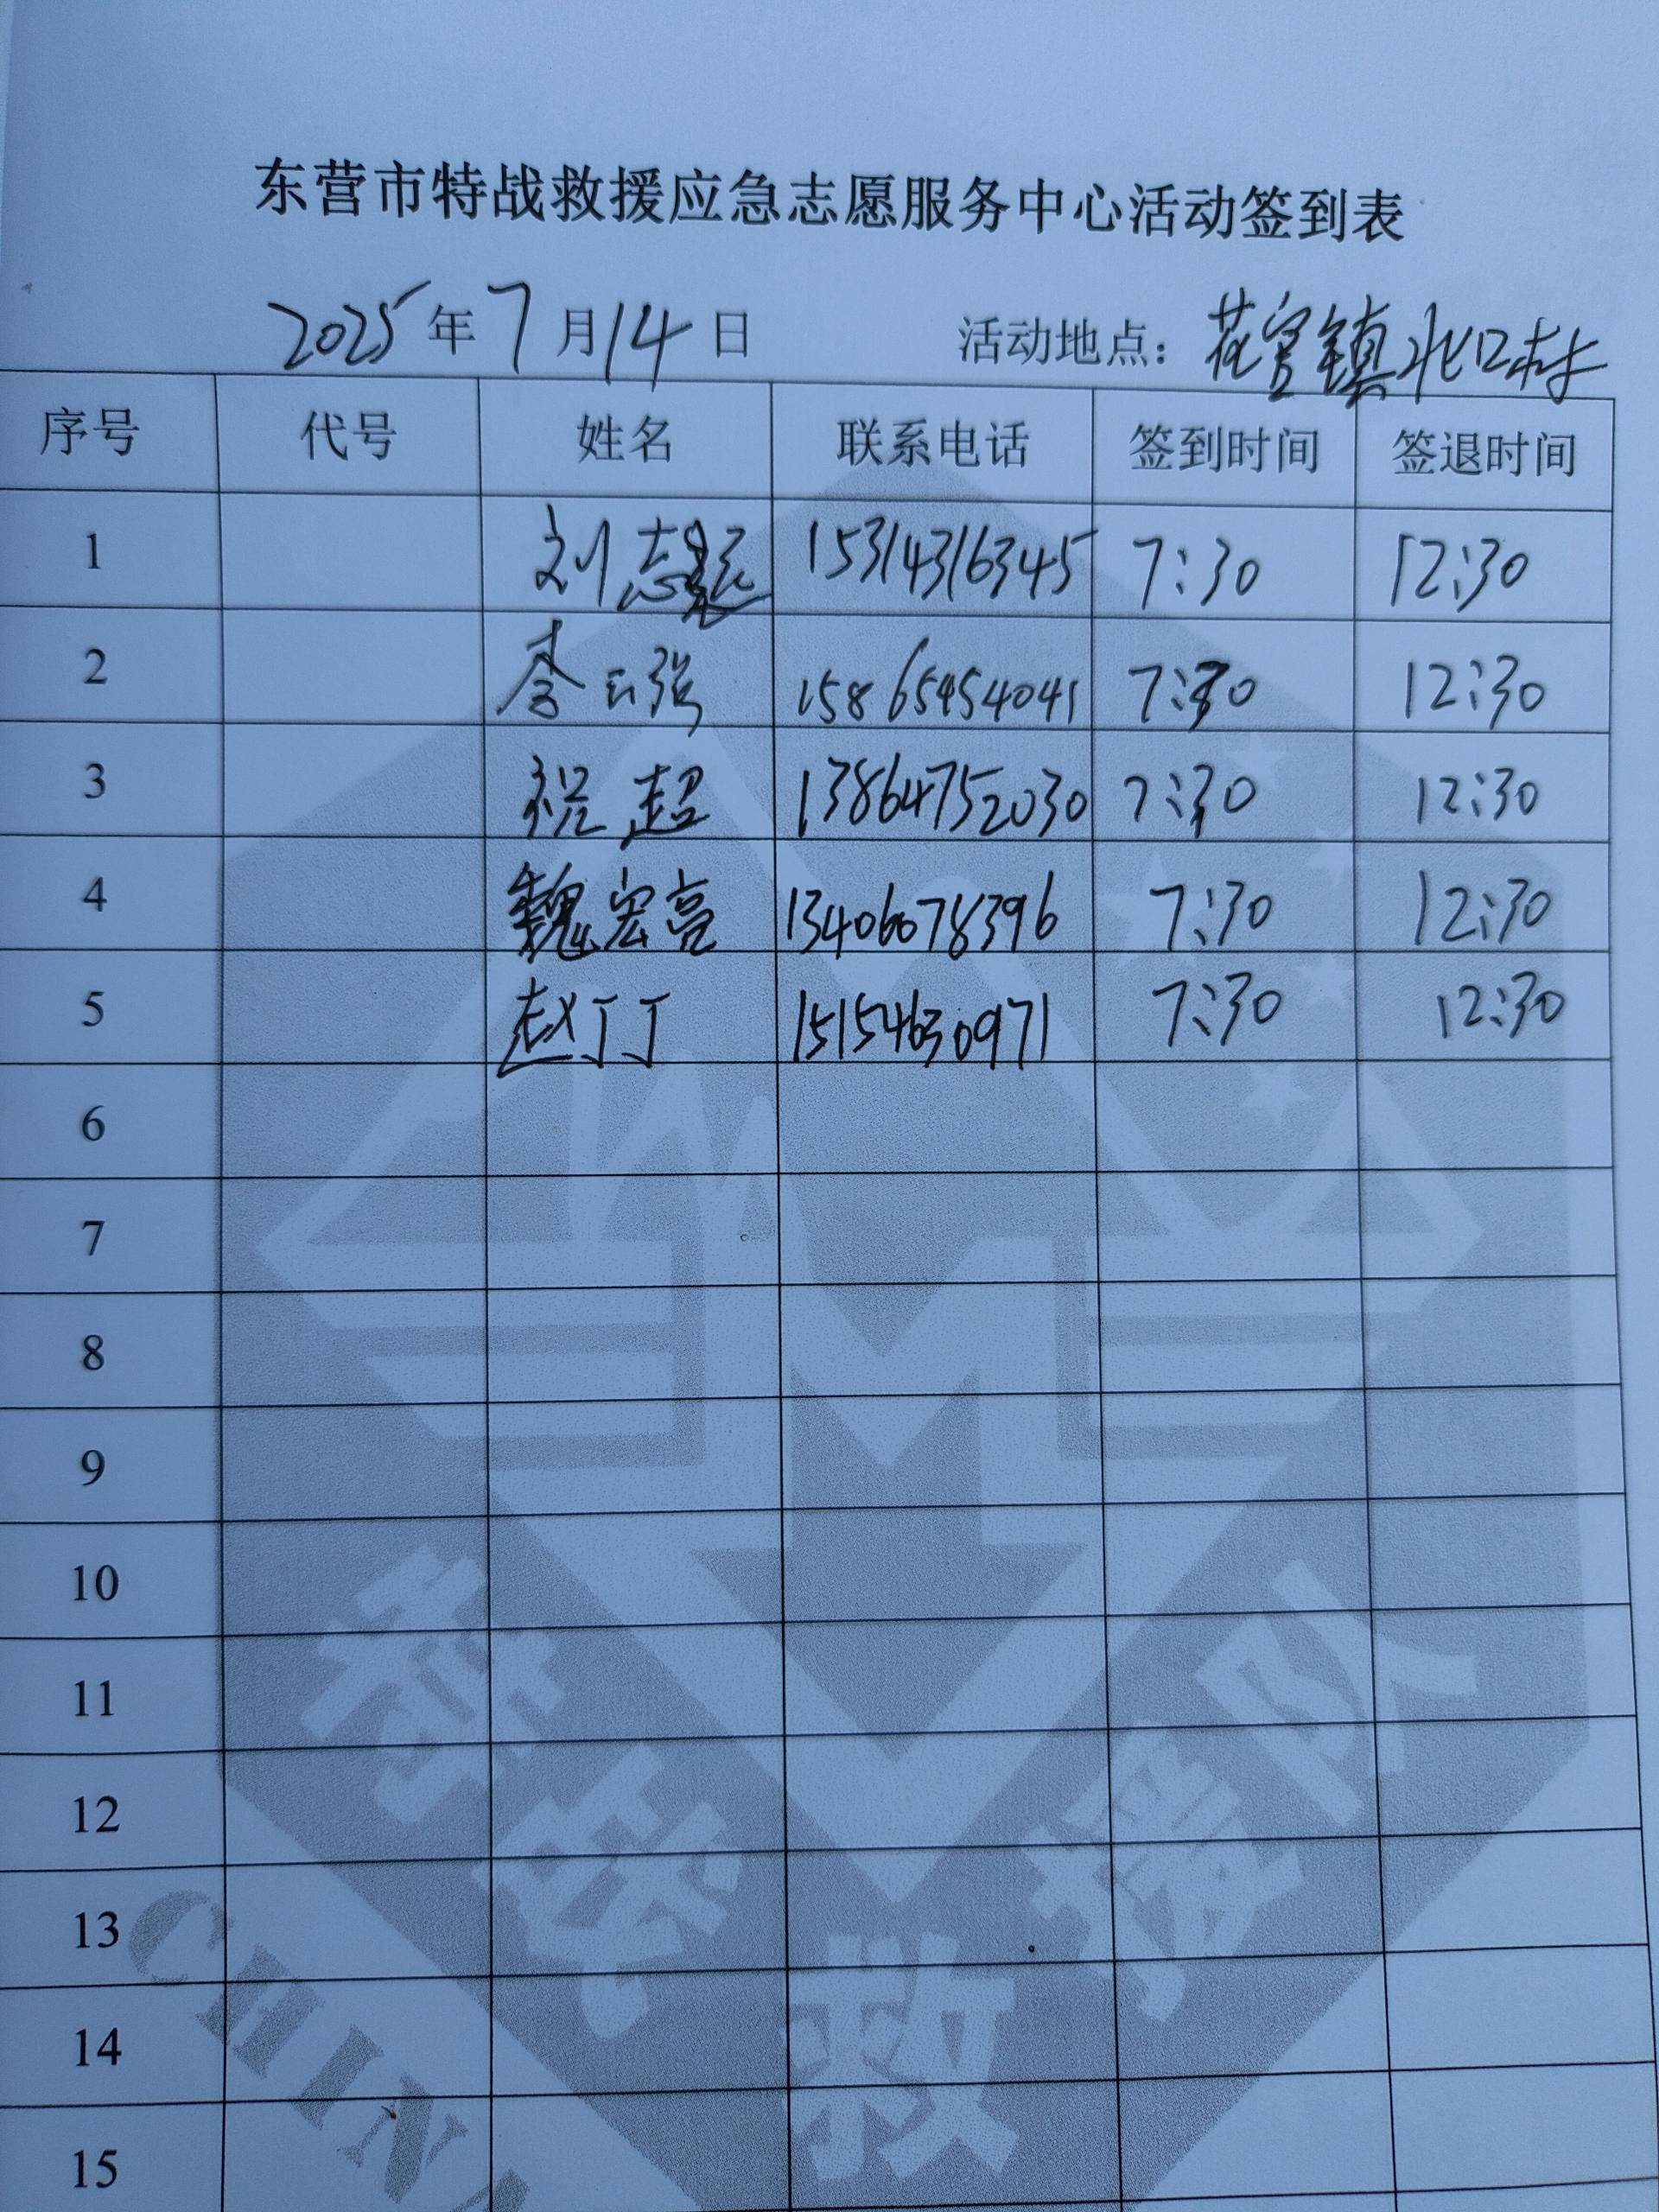 东营市特战救援应急志愿服务中心活动签到表
2025年7月14日 活动地点：花官镇北口村
序号 代号 姓名 联系电话 签到时间 签退时间
1 刘志 15314316345 7:30 12:30
2 李 强 15865454041 7:30 12:30
3 祝超 13864752030 7:30 12:30
4 魏宏亮 13406078396 7:30 12:30
5 赵丁丁 15154630971 7:30 12:30
6
7
8
9
10
11
12
13
14
15
特战救援队
CHINA